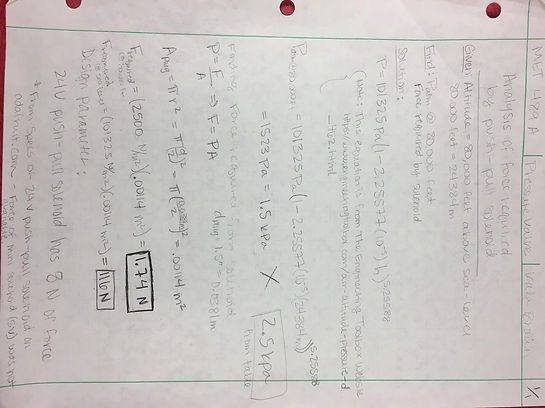 MET 489A | Pressure Valve | Valve Action | 1/1
Analysis of force required
by push-pull solenoid
Given: Altitude = 80,000 feet above sea-level
80,000 feet = 24384 m
Find: Patm @ 80,000 feet
Force required by solenoid
Solution:
P = 101325 Pa (1 - 2.25577 (10⁻⁵) h)^5.25588
(Note: This equation is from The Engineering Toolbox website
_462.html)
= 101325 Pa (1 - 2.25577 (10⁻⁵)(24384 m))^5.25588
= 1523 Pa = 1.5 kPa X 2.5 kPa
from table
Finding Force required from solenoid
P = F/A ⇒ F = PA dmin = 1.5" = 0.0381 m
= πr² = π(d/2)² = .0014 m²
Frequired = (2500 N/m²)(.0014 m²) = 1.74 N
Frequired = (101325 N/m²)(.0014 m²) =
Design parameter:
24V push-pull solenoid has 8 N of force
* from specs of 24V push-pull solenoid on
adafruit.com Force of mini solenoid (5V) was not